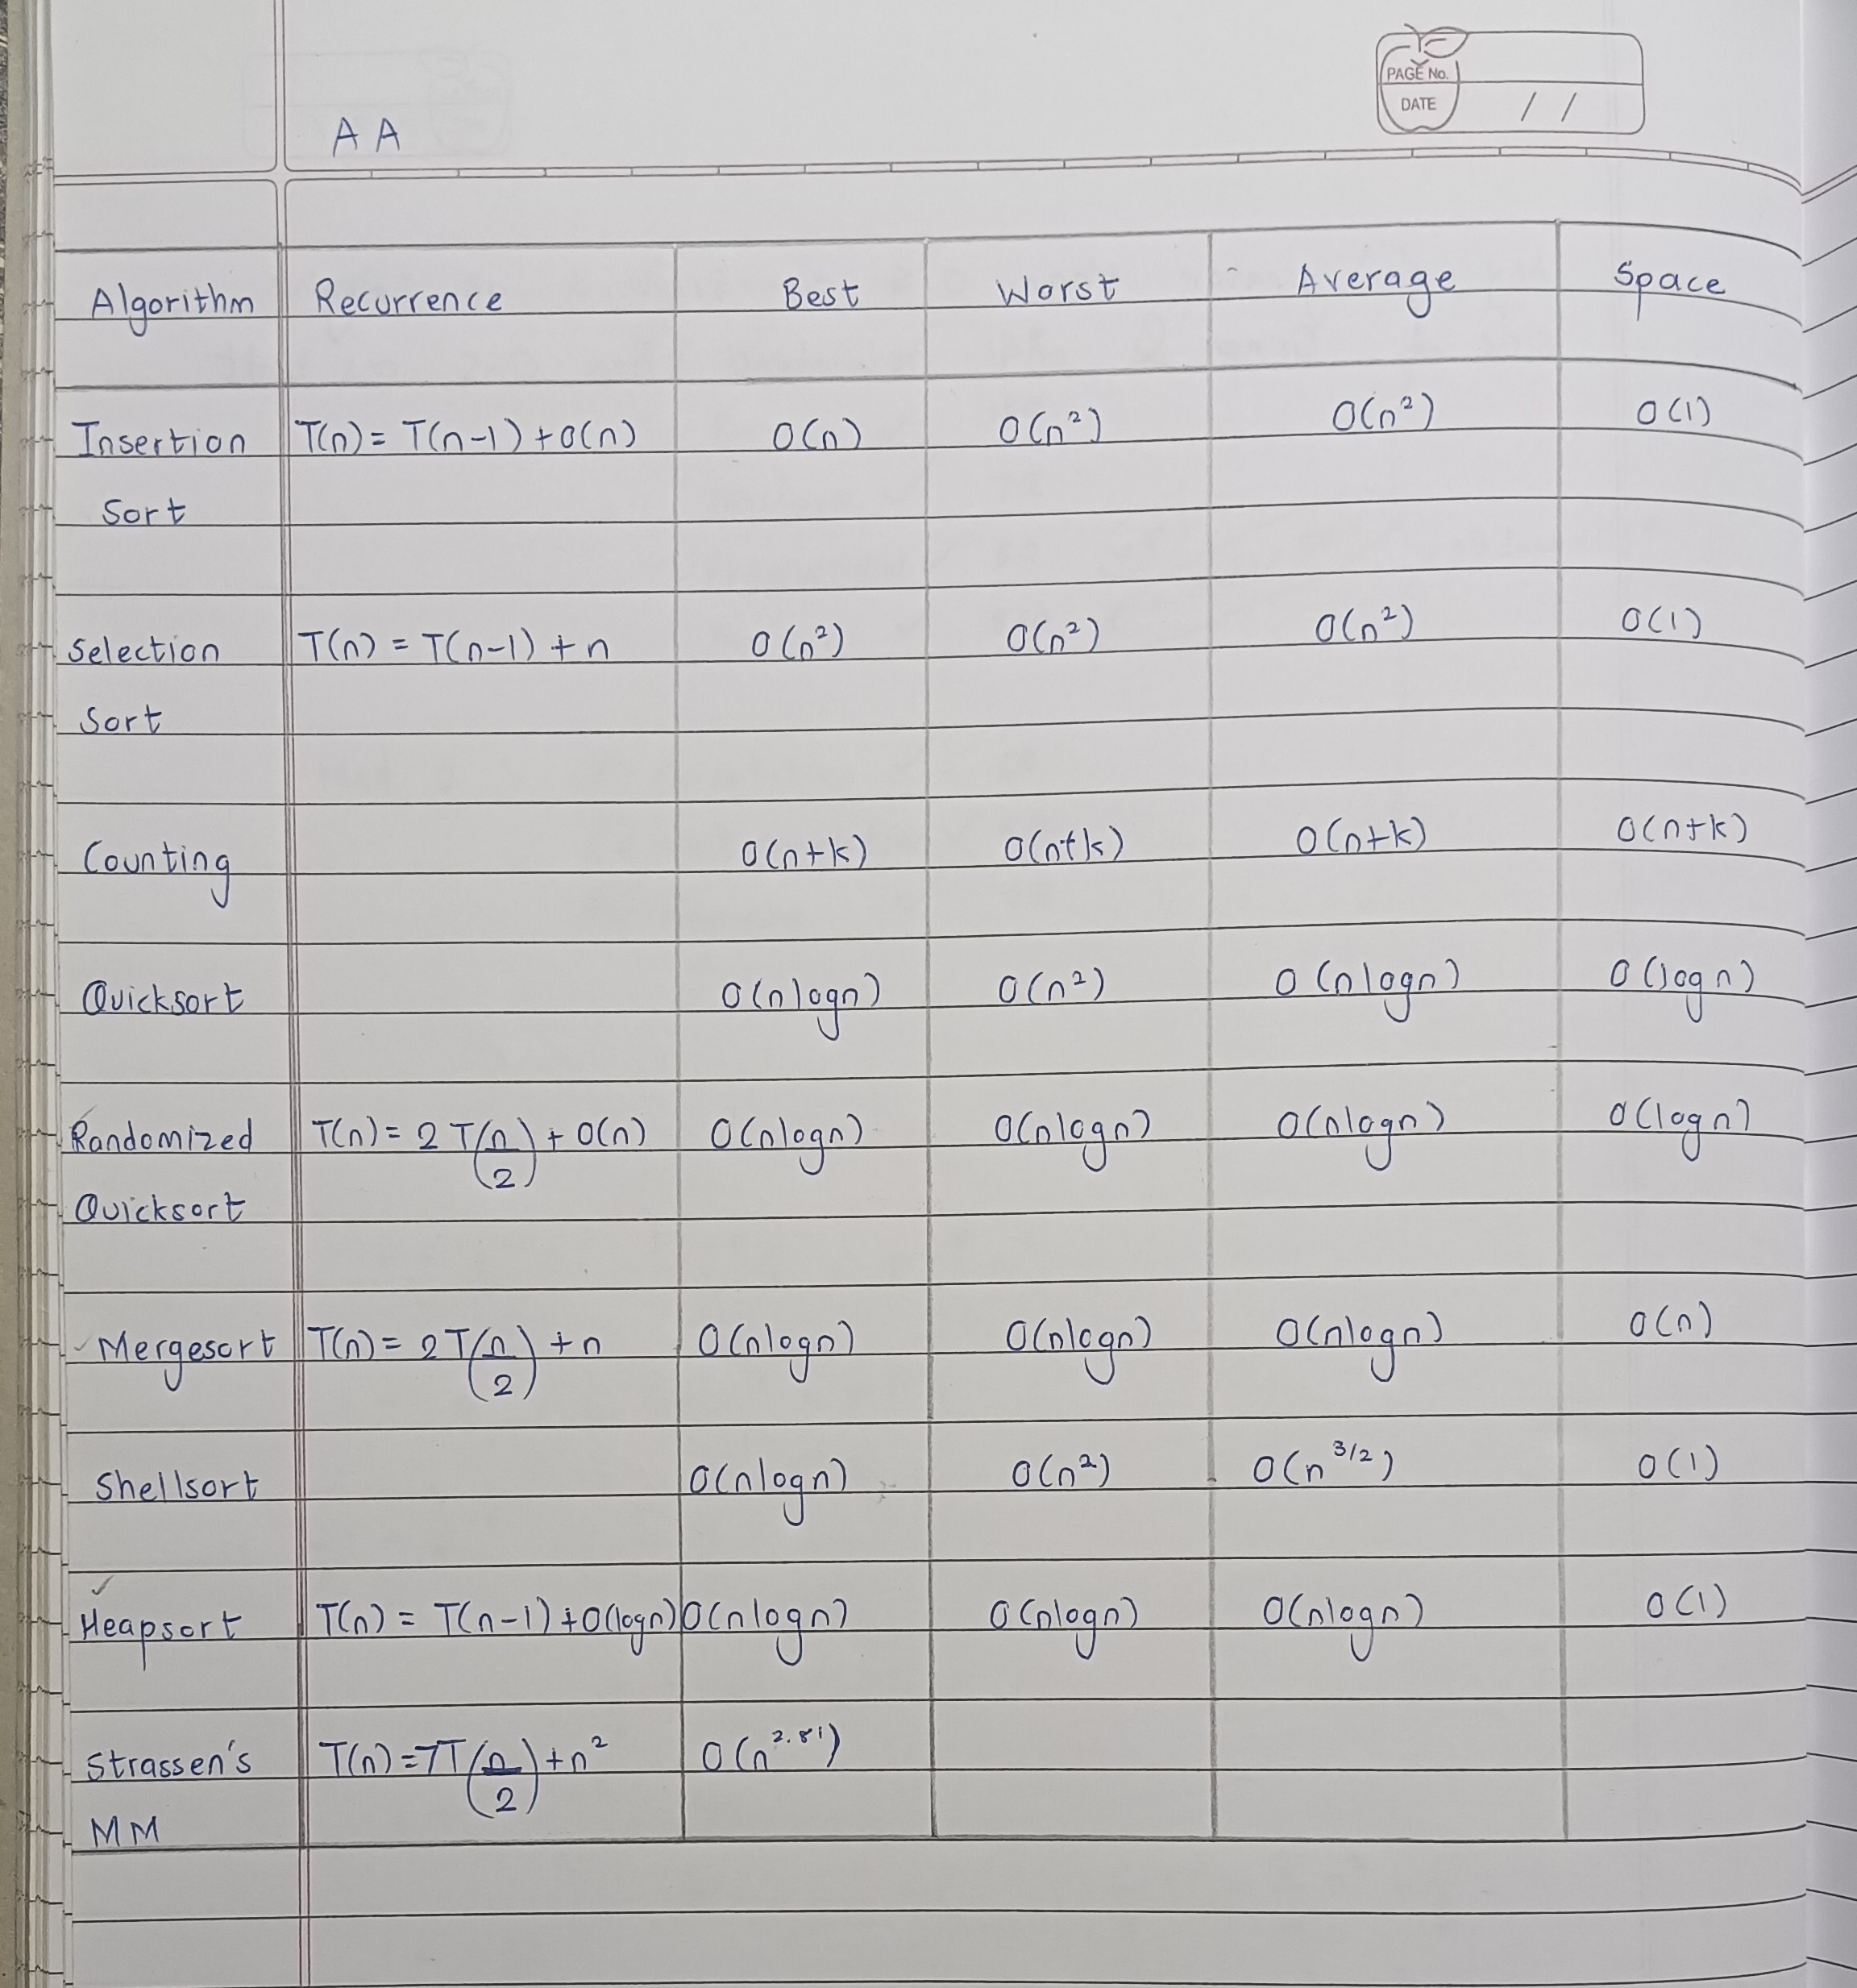 PAGE No.
DATE / /
A A
Algorithm Recurrence Best Worst Average Space
Insertion T(n) = T(n-1) + O(n) O(n) O(n²) O(n²) O(1)
Sort
Selection T(n) = T(n-1) + n O(n²) O(n²) O(n²) O(1)
Sort
Counting O(n+k) O(n+k) O(n+k) O(n+k)
Quicksort O(nlogn) O(n²) O(nlogn) O(logn)
Randomized T(n) = 2T(n/2) + O(n) O(nlogn) O(nlogn) O(nlogn) O(logn)
Quicksort
Mergesort T(n) = 2T(n/2) + n O(nlogn) O(nlogn) O(nlogn) O(n)
Shellsort O(nlogn) O(n²) O(n^3/2) O(1)
Heapsort T(n) = T(n-1) + O(logn) O(nlogn) O(nlogn) O(nlogn) O(1)
Strassen's T(n) = 7T(n/2) + n² O(n^2.81)
MM